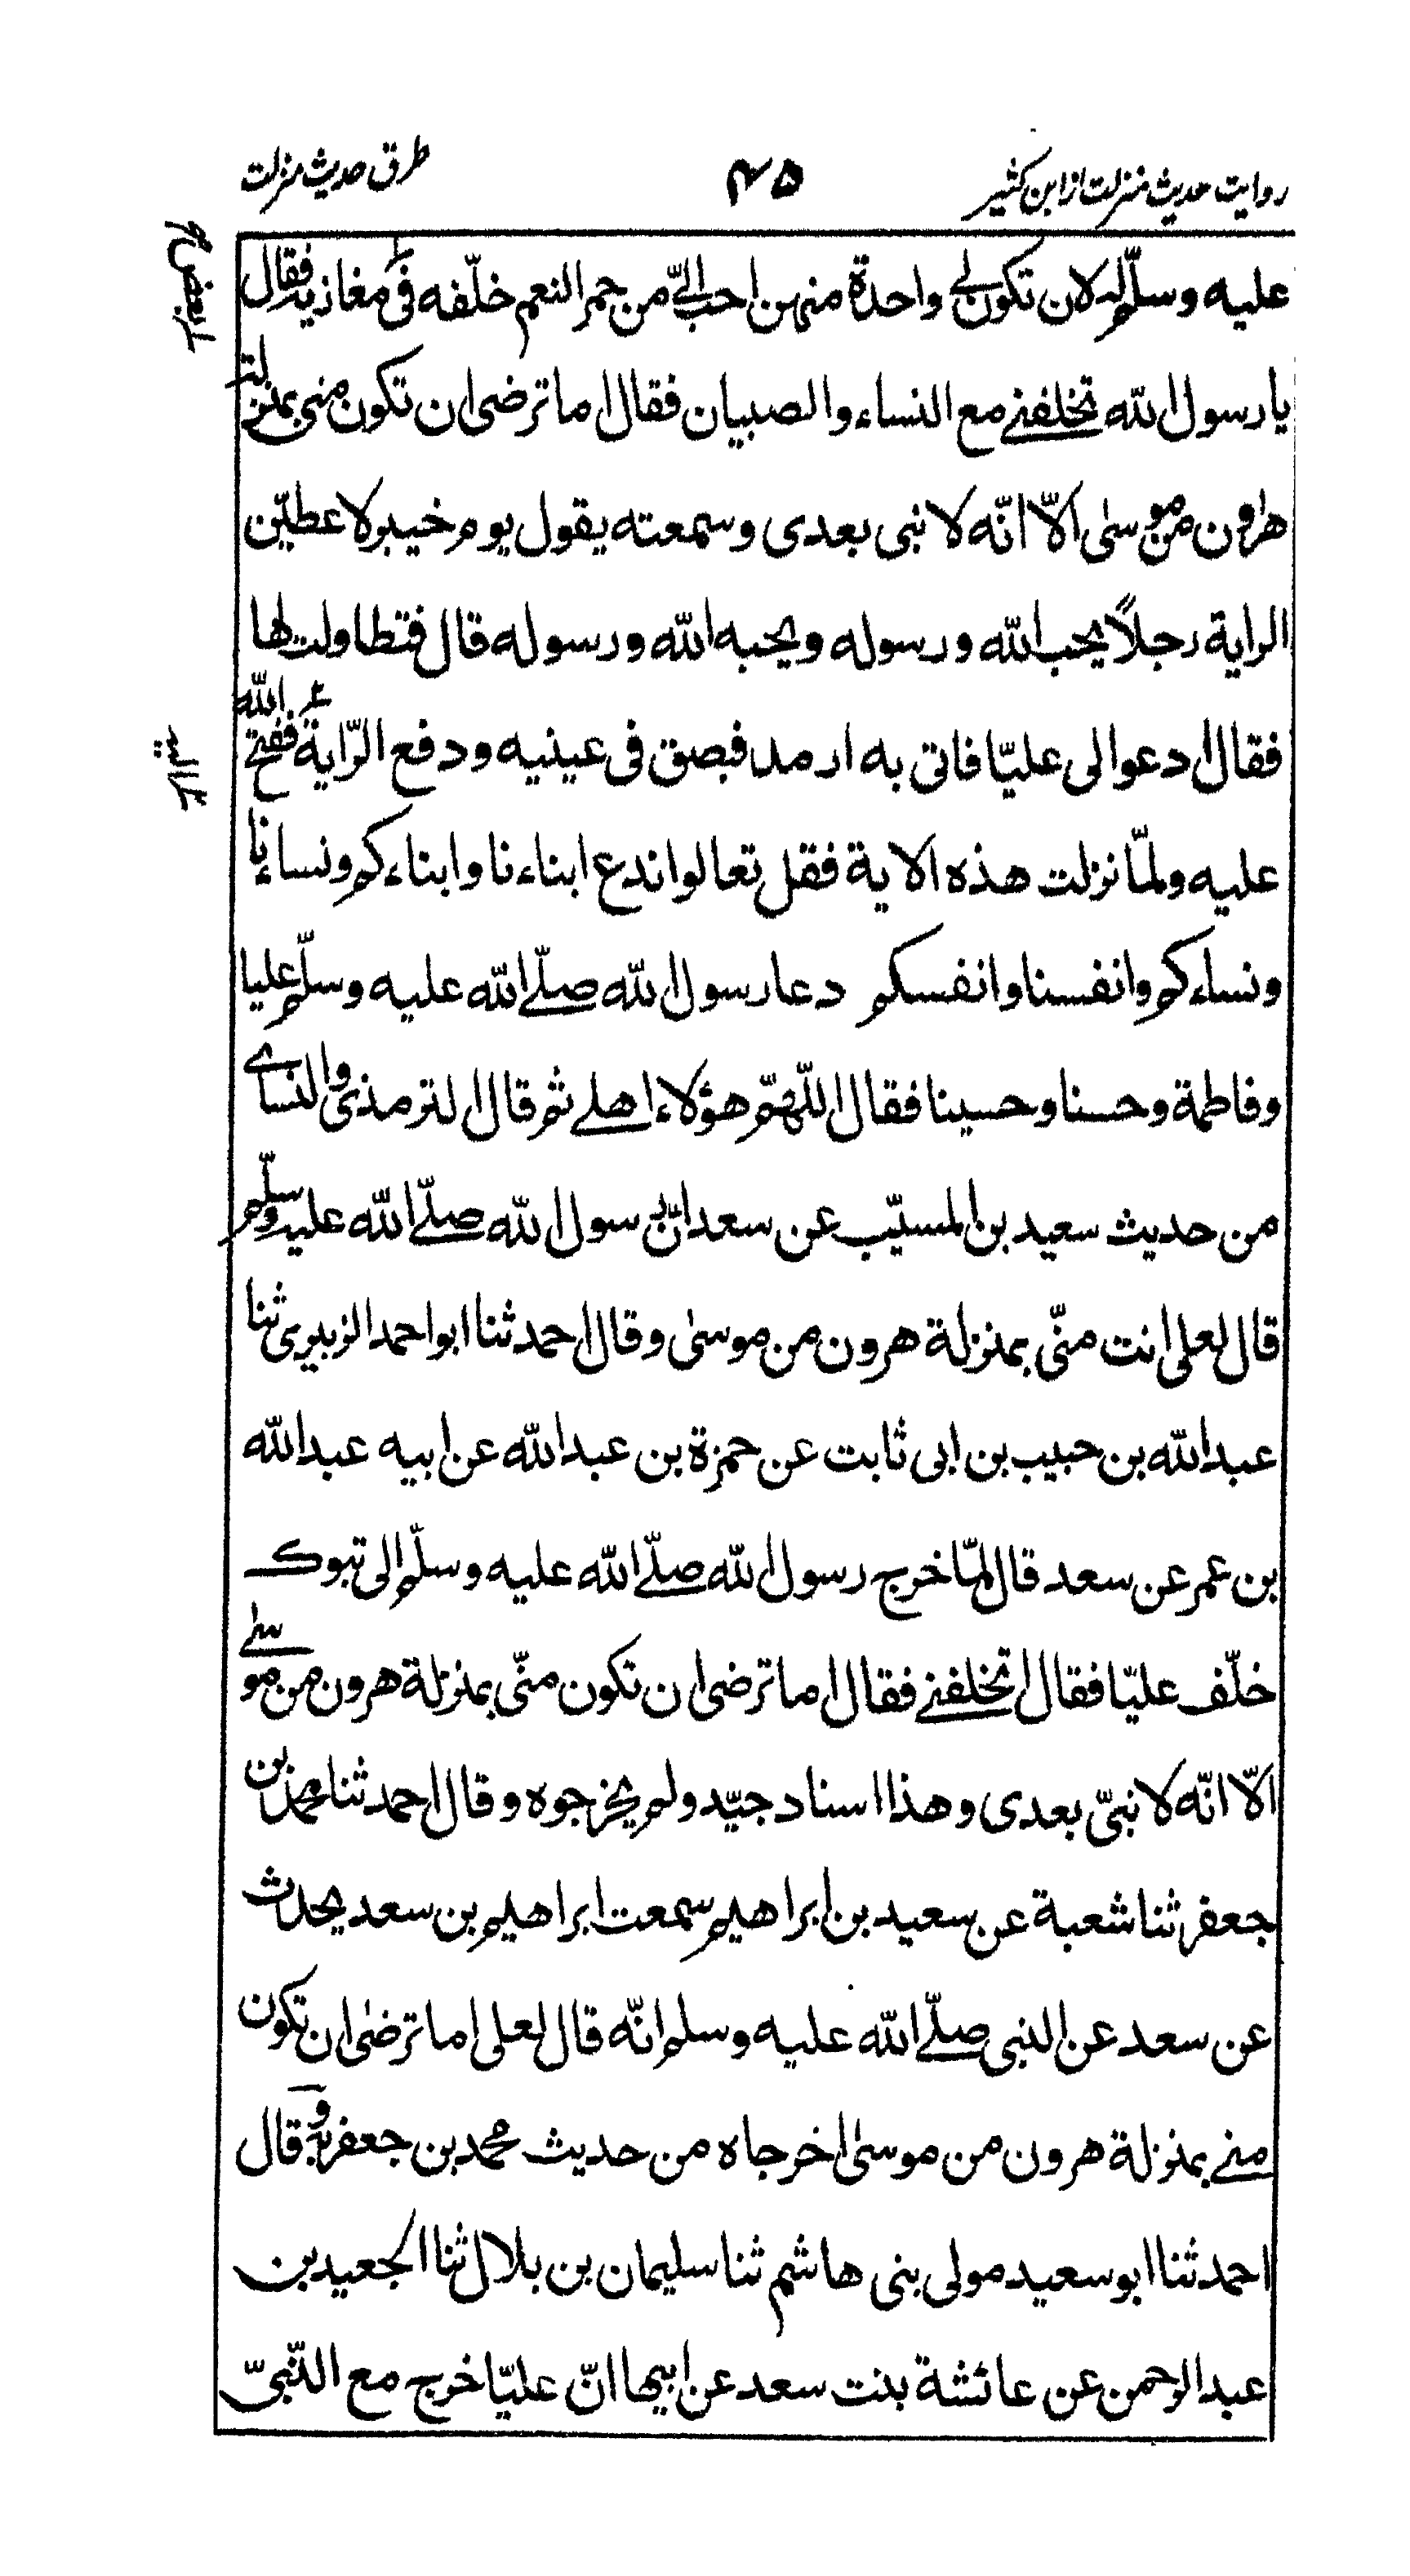 روایت حدیث منزلت از ابن کثیر
۴۵
طرق حدیث منزلت
علیه وسلّم له لان تکون لی واحدة منهن احب الیّ من حمر النعم خلّفه فی مغازیه فقال
یا رسول الله تخلفنی مع النساء والصبیان فقال اما ترضی ان تکون منی بمنزلة
هرون من موسی الّا انّه لا نبی بعدی وسمعته یقول یوم خیبر لاعطینّ
الرایة رجلاً یحب الله ورسوله ویحبه الله ورسوله قال فتطاولت لها
فقال ادعوا لی علیّا فاتی به ارمد فبصق فی عینیه ودفع الرّایة ففتح الله
علیه ولمّا نزلت هذه الایة فقل تعالوا ندع ابناءنا وابناءکم ونساءنا
ونساءکم وانفسنا وانفسکم دعا رسول الله صلّی الله علیه وسلّم علیا
وفاطمة وحسنا وحسینا فقال اللّهمّ هؤلاء اهلی ثم قال الترمذی والنسای
من حدیث سعید بن المسیّب عن سعد انّ رسول الله صلّی الله علیه وسلّم
قال لعلی انت منّی بمنزلة هرون من موسی وقال احمد ثنا ابو احمد الزبیری ثنا
عبد الله بن حبیب بن ابی ثابت عن حمزة بن عبد الله عن ابیه عبد الله
بن عمر عن سعد قال لمّا خرج رسول الله صلّی الله علیه وسلّم الی تبوک
خلّف علیّا فقال اتخلفنی فقال اما ترضی ان تکون منّی بمنزلة هرون من موسی
الّا انّه لا نبیّ بعدی وهذا اسناد جیّد ولم یخرجوه وقال احمد ثنا محمد بن
جعفر ثنا شعبة عن سعید بن ابراهیم سمعت ابراهیم بن سعد یحدث
عن سعد عن النبی صلّی الله علیه وسلم انّه قال لعلی اما ترضی ان تکون
منی بمنزلة هرون من موسی اخرجاه من حدیث محمد بن جعفر به وقال
احمد ثنا ابو سعید مولی بنی هاشم ثنا سلیمان بن بلال ثنا الجعید بن
عبد الرحمن عن عائشة بنت سعد عن ابیها انّ علیّا خرج مع النّبیّ